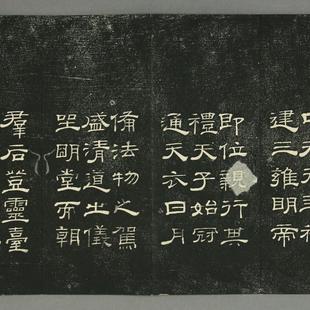 建三雍明帝
即位親行其
禮天子始冠
通天衣日月
備法物之駕
盛清道之儀
坐明堂而朝
羣后登靈臺